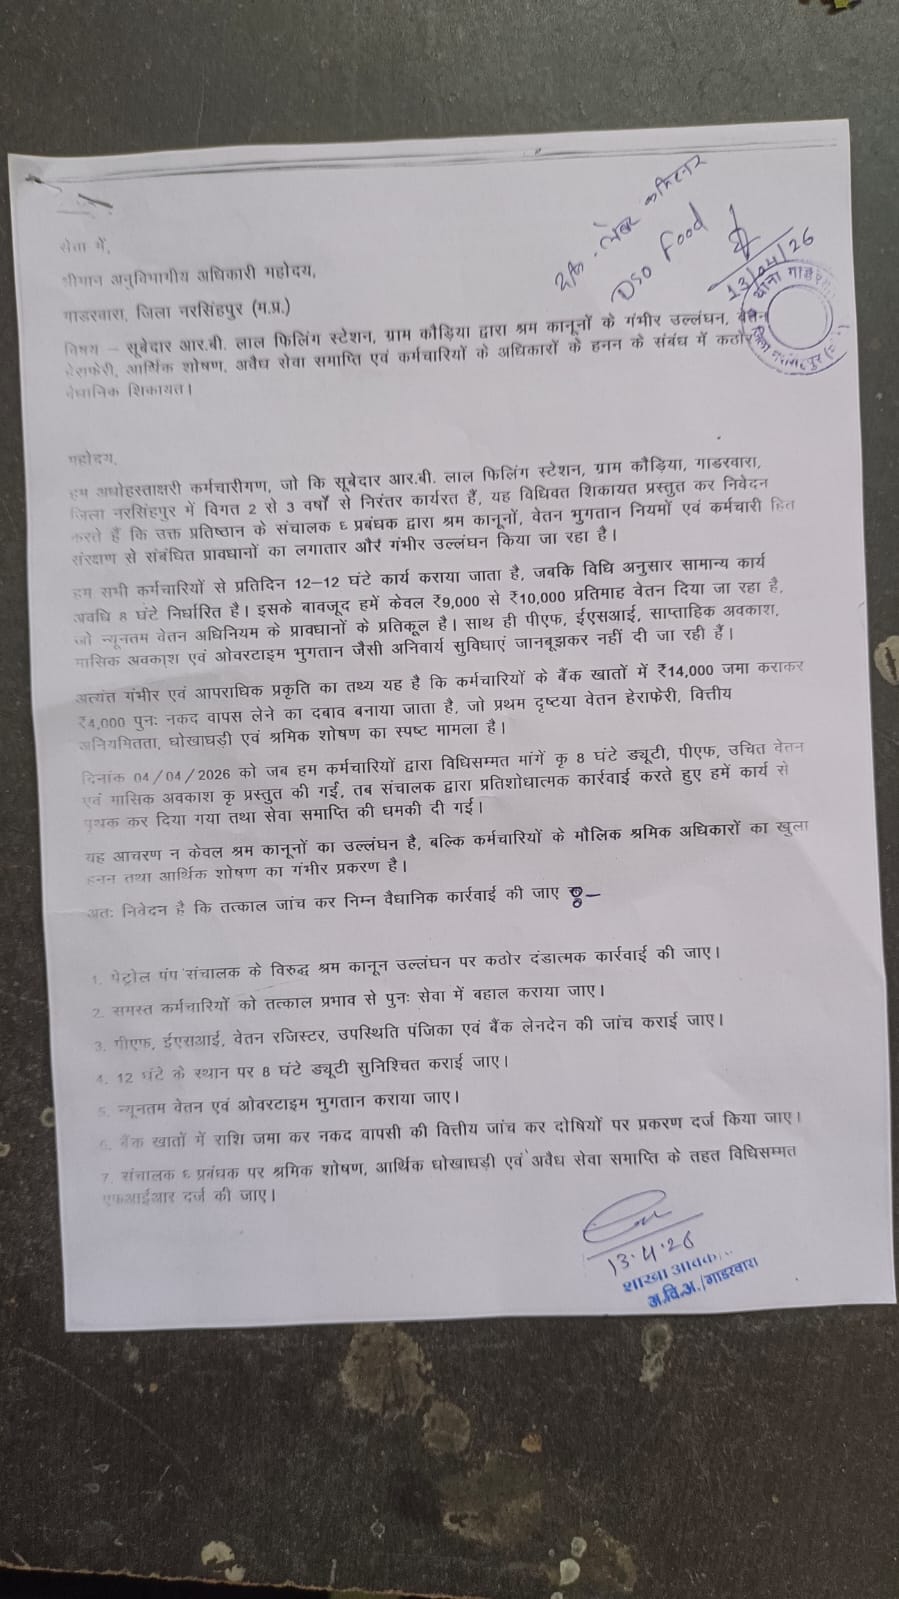 सेवा में,
श्रीमान अनुविभागीय अधिकारी महोदय,
गाडरवारा, जिला नरसिंहपुर (म.प्र.)
लेबर
DSO Food
13/04/26
थाना गाडर
विषय – सूबेदार आर.बी. लाल फिलिंग स्टेशन, ग्राम कौड़िया द्वारा श्रम कानूनों के गंभीर उल्लंघन, वेतन
हेराफेरी, आर्थिक शोषण, अवैध सेवा समाप्ति एवं कर्मचारियों के अधिकारों के हनन के संबंध में कठोर
वैधानिक शिकायत।
महोदय,
हम अधोहस्ताक्षरी कर्मचारीगण, जो कि सूबेदार आर.बी. लाल फिलिंग स्टेशन, ग्राम कौड़िया, गाडरवारा,
जिला नरसिंहपुर में विगत 2 से 3 वर्षों से निरंतर कार्यरत हैं, यह विधिवत शिकायत प्रस्तुत कर निवेदन
करते हैं कि उक्त प्रतिष्ठान के संचालक ६ प्रबंधक द्वारा श्रम कानूनों, वेतन भुगतान नियमों एवं कर्मचारी हित
संरक्षण से संबंधित प्रावधानों का लगातार और गंभीर उल्लंघन किया जा रहा है।
हम सभी कर्मचारियों से प्रतिदिन 12–12 घंटे कार्य कराया जाता है, जबकि विधि अनुसार सामान्य कार्य
अवधि 8 घंटे निर्धारित है। इसके बावजूद हमें केवल ₹9,000 से ₹10,000 प्रतिमाह वेतन दिया जा रहा है,
जो न्यूनतम वेतन अधिनियम के प्रावधानों के प्रतिकूल है। साथ ही पीएफ, ईएसआई, साप्ताहिक अवकाश,
मासिक अवकाश एवं ओवरटाइम भुगतान जैसी अनिवार्य सुविधाएं जानबूझकर नहीं दी जा रही हैं।
अत्यंत गंभीर एवं आपराधिक प्रकृति का तथ्य यह है कि कर्मचारियों के बैंक खातों में ₹14,000 जमा कराकर
₹4,000 पुनः नकद वापस लेने का दबाव बनाया जाता है, जो प्रथम दृष्टया वेतन हेराफेरी, वित्तीय
अनियमितता, धोखाधड़ी एवं श्रमिक शोषण का स्पष्ट मामला है।
दिनांक 04/04/2026 को जब हम कर्मचारियों द्वारा विधिसम्मत मांगें कृ 8 घंटे ड्यूटी, पीएफ, उचित वेतन
एवं मासिक अवकाश कृ प्रस्तुत की गईं, तब संचालक द्वारा प्रतिशोधात्मक कार्रवाई करते हुए हमें कार्य से
पृथक कर दिया गया तथा सेवा समाप्ति की धमकी दी गई।
यह आचरण न केवल श्रम कानूनों का उल्लंघन है, बल्कि कर्मचारियों के मौलिक श्रमिक अधिकारों का खुला
हनन तथा आर्थिक शोषण का गंभीर प्रकरण है।
अतः निवेदन है कि तत्काल जांच कर निम्न वैधानिक कार्रवाई की जाए :–
1. पेट्रोल पंप संचालक के विरुद्ध श्रम कानून उल्लंघन पर कठोर दंडात्मक कार्रवाई की जाए।
2. समस्त कर्मचारियों को तत्काल प्रभाव से पुनः सेवा में बहाल कराया जाए।
3. पीएफ, ईएसआई, वेतन रजिस्टर, उपस्थिति पंजिका एवं बैंक लेनदेन की जांच कराई जाए।
4. 12 घंटे के स्थान पर 8 घंटे ड्यूटी सुनिश्चित कराई जाए।
5. न्यूनतम वेतन एवं ओवरटाइम भुगतान कराया जाए।
6. बैंक खातों में राशि जमा कर नकद वापसी की वित्तीय जांच कर दोषियों पर प्रकरण दर्ज किया जाए।
7. संचालक ६ प्रबंधक पर श्रमिक शोषण, आर्थिक धोखाधड़ी एवं अवैध सेवा समाप्ति के तहत विधिसम्मत
एफआईआर दर्ज की जाए।
13.4.26
शाखा आवक
अ.वि.अ./गाडरवारा